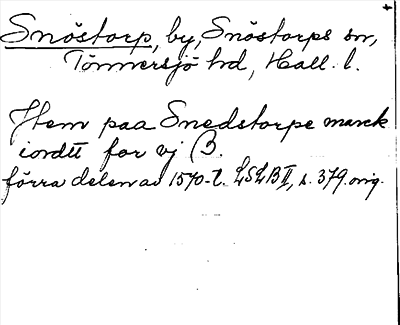 Snöstorp, by, Snöstorps sn,
Tönnersjö hd, Hall. l.
Hem paa Snedstorpe marck
iordtt for vj B.
förra delen av 1570-t. LSLB II, s. 379. orig.